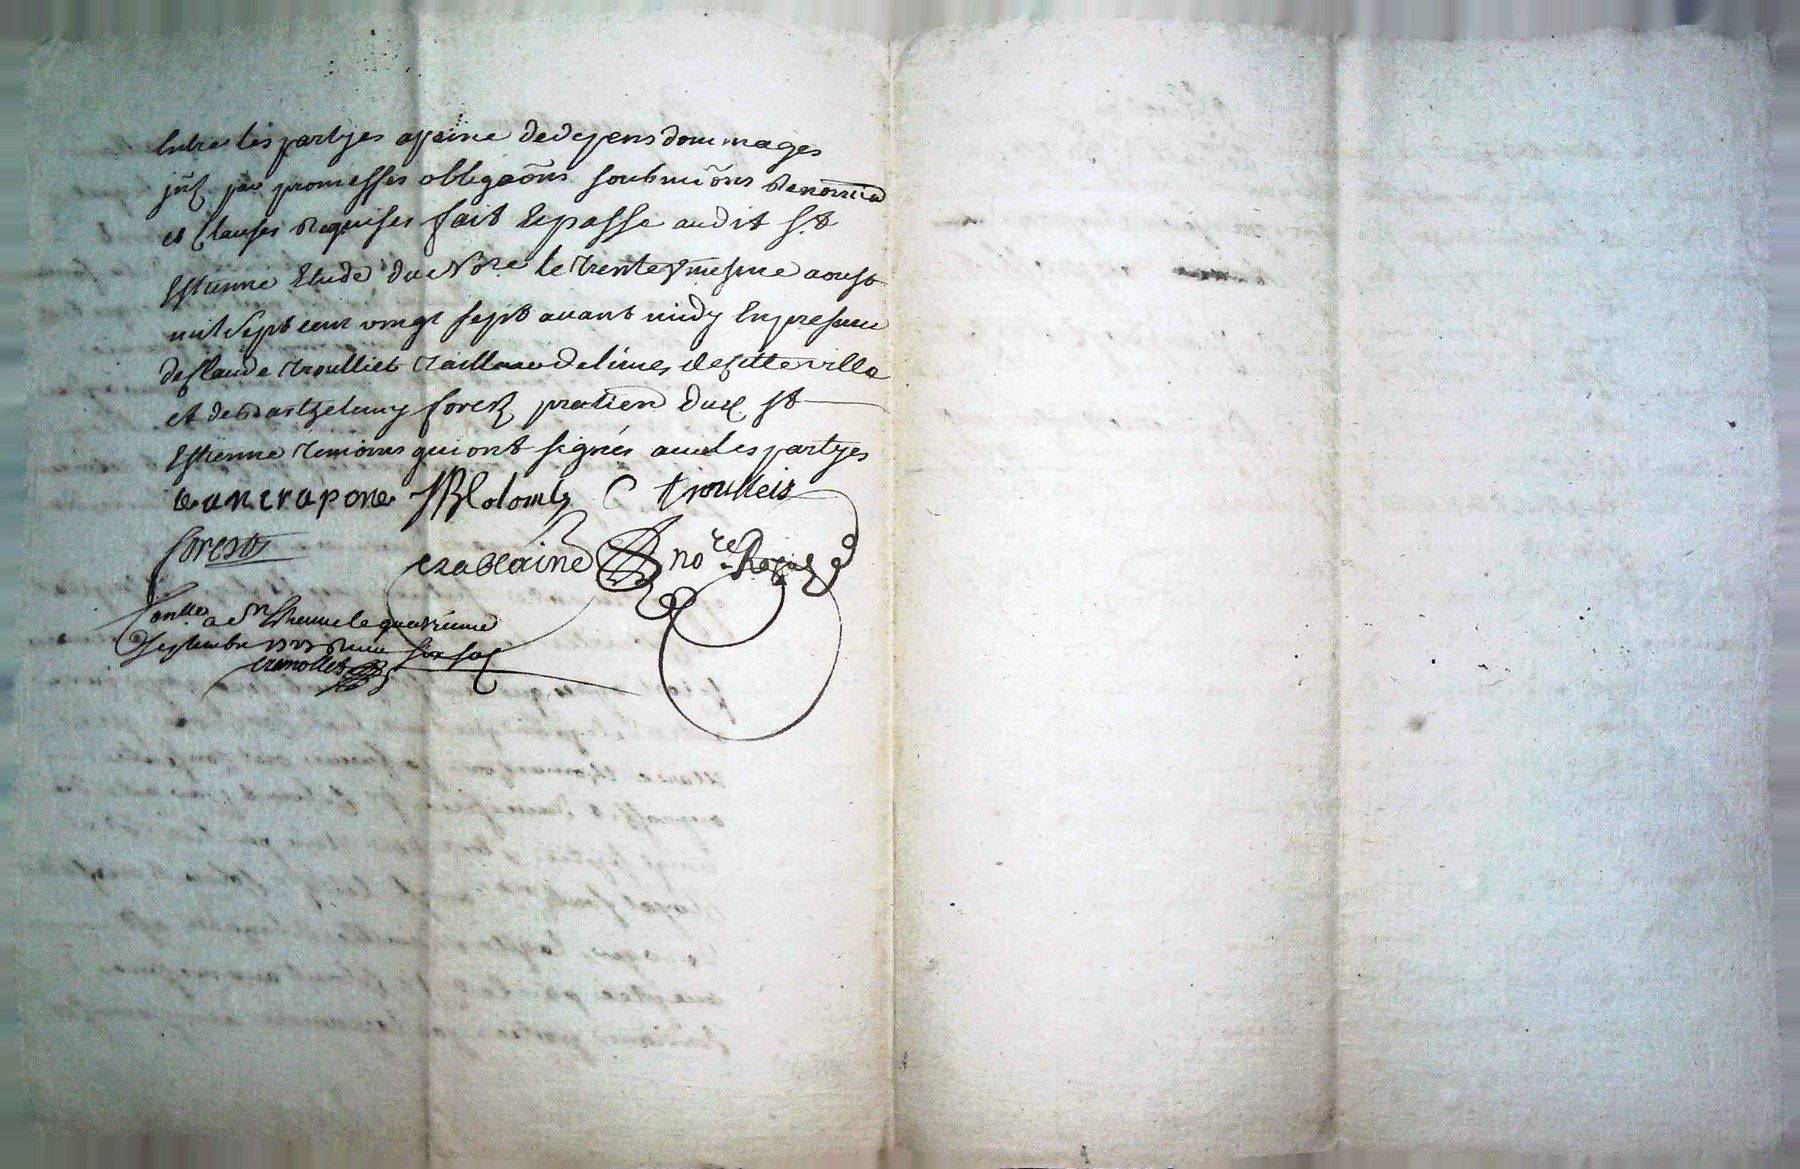 Entre les partyes apeine de depens dommages
jntz par promesses obligaõns soubmiõns Renonciõ
et Clauses Requises fait Et passé audit St
Estienne Etude du Nore le trenteyesme aoust
mil sept cent vingt sept avant midy En presence
de Claude troulliet tailleur de limes de cette ville
et de Barthelemy forest pratien dud St
Estienne temoins qui ont signés avec les partyes
JB Colomb C troulleit
forest
no re Royal
Conlle a St Ethienne le quatrieme
Septembre 1727 six sols